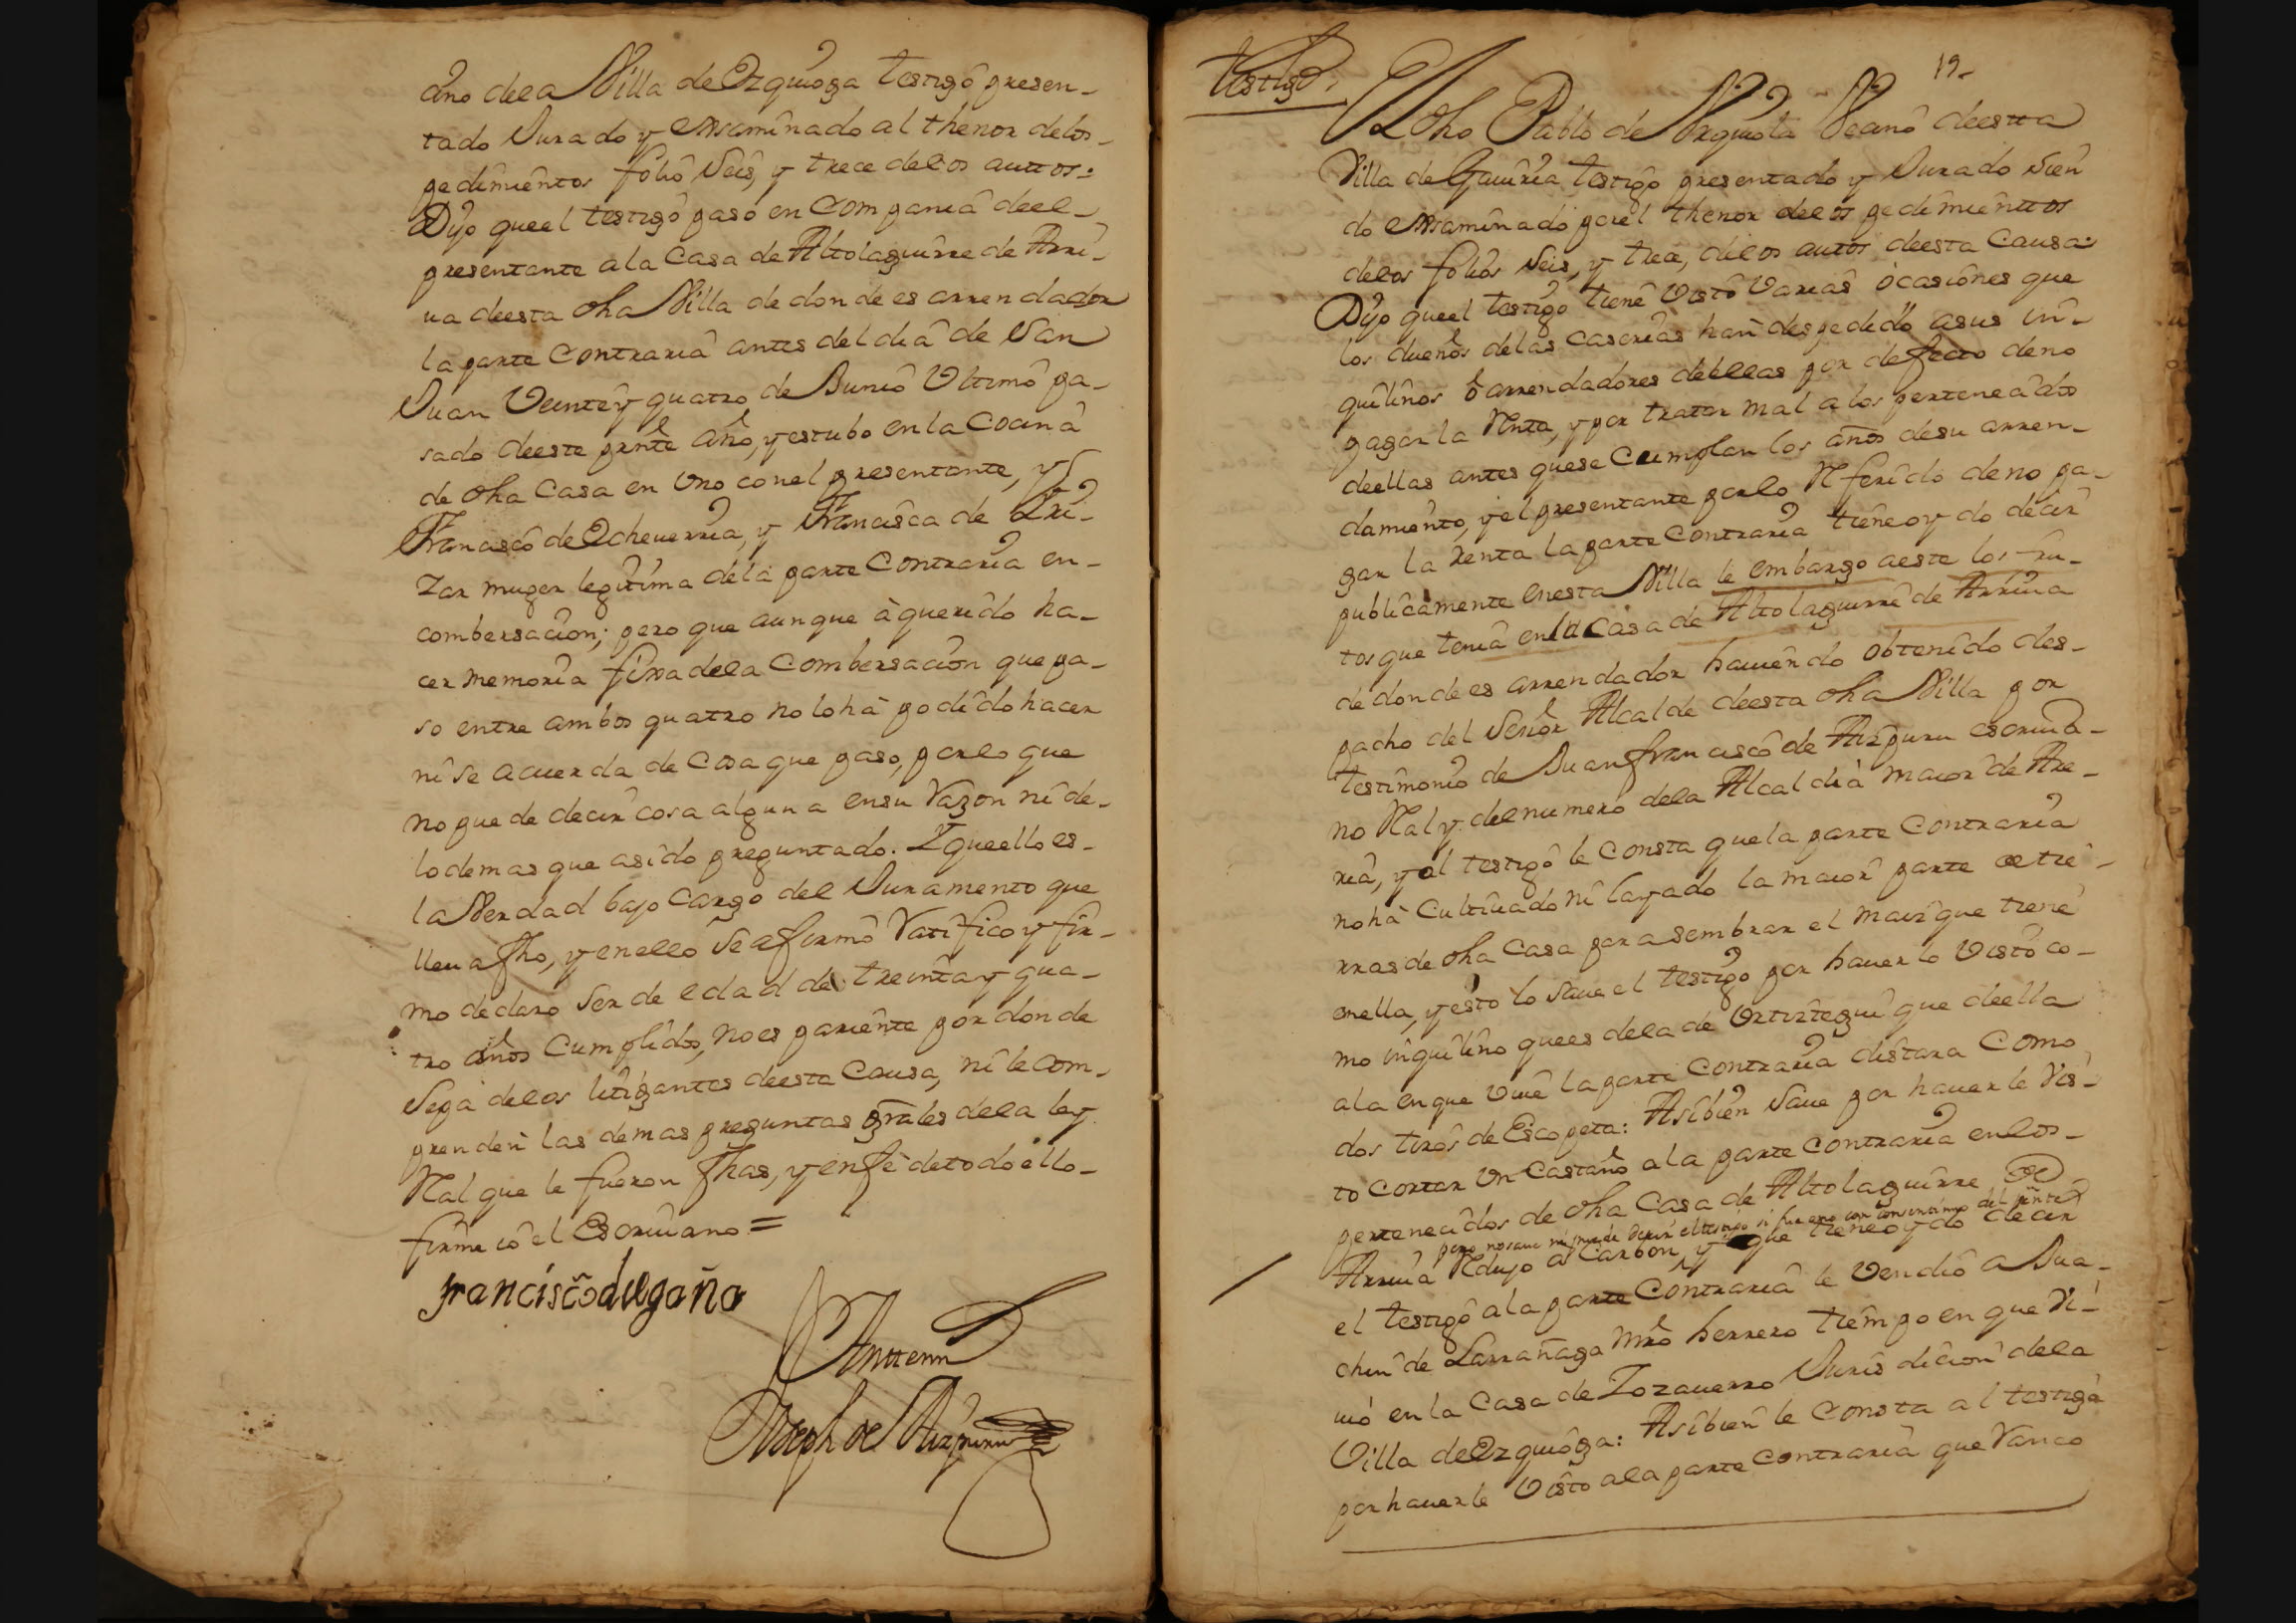 cino dela Villa de Ezquioga testigo presen-
tado Jurado y exsaminado al thenor delos-
pedimientos folio Seis, y trece delos auttos:
Dijo queel testigo paso en Compania deel-
presentante ala Casa de Altolaguirre de Arri-
ua deesta dha Villa de donde es arrendador
la parte Contraria antes del dia de San
Juan Veinte y quatro de Junio Ultimo pa-
sado deeste prnte año, y estubo en la Cocina
de dha Casa en Uno conel presentante, y
Francisco de Echeuerria, y Francisca de Yri-
zar muger legitima dela parte Contraria en-
combersacion; pero que aunque à querido ha-
cer memoria fixa dela Combersacion que pa-
so entre ambos quatro no lo hà podido hacer
ni se acuerda de Cosa que paso, por lo que
no puede decir cosa alguna ensu Razon ni de-
lo demas que asido preguntado. Y queello es-
la Verdad bajo cargo del Juramento que
lleua fho, y enello Se afirmò Ratifico y fir-
mo declaro Ser de edad de treinta y qua-
tro años Cumplidos, no es pariente por donde
Sepa delos litigantes deesta Causa, ni le com-
prenden las demas preguntas grales dela ley
Real que le fueron fhas, y enfè de todo ello-
firme io el Escriuano =
francisco de Ugaña
Anttemi
Joseph de Aizpuru
testigo.
19-
El dho Pablo de Urquiola Vecino deesta
Villa de Gauiria testigo presentado y Jurado Sien
do exsaminado por el thenor delos pedimienttos
delos folios Seis, y trece, delos autos deesta Causa:
Dijo queel testigo tiene Visto Varias ocasiones que
los dueños delas Caserias han despedido asus in-
quilinos ò arrendadores dellas por defecto de no
pagar la Renta, y por tratar mal a los pertenecidos
deellas antes quese Cumplan los años desu arren-
damiento, y el presentante por lo Referido de no pa-
gar la Renta la parte Contraria tiene oydo decir
publicamente enesta Villa le embargo aeste los fru-
tos que tenia en la Casa de Altolaguirre de Arriua
de donde es arrendador hauiendo obtenido des-
pacho del Señor Alcalde deesta dha Villa por
testimonio de Juan francisco de Aizpuru escriua-
no Real y del numero dela Alcaldia maior de Are-
ria, y al testigo le Consta quela parte Contraria
no hà Cultiuado ni layado la maior parte de tie-
rras de dha Casa para sembrar el maiz que tiene
enella, y esto lo Saue el testigo por hauerlo Visto co-
mo inquilino quees dela de Urtiztegui que deella
ala en que Viue la parte Contraria distara Como
dos tiros de Escopeta: Asibien Saue por hauerle Vis-
to Cortar Un Castaño ala parte Contraria enlos-
pertenecidos de dha Casa de Altolaguirre de
pero no saue ni puede decir el testigo si fue ono con consentimto del prnte
Arriua Redujo a Carbon, y que tiene oydo decir
el testigo ala parte Contraria le Vendiò a Joa-
chin de Larrañaga Mro herrero tiempo en que Vi-
uiò en la Casa de Zozauerro Jurisdicion dela
Villa de Ezquioga: Asibien le Consta al testigo
por hauerle Visto ala parte Contraria que Vanco